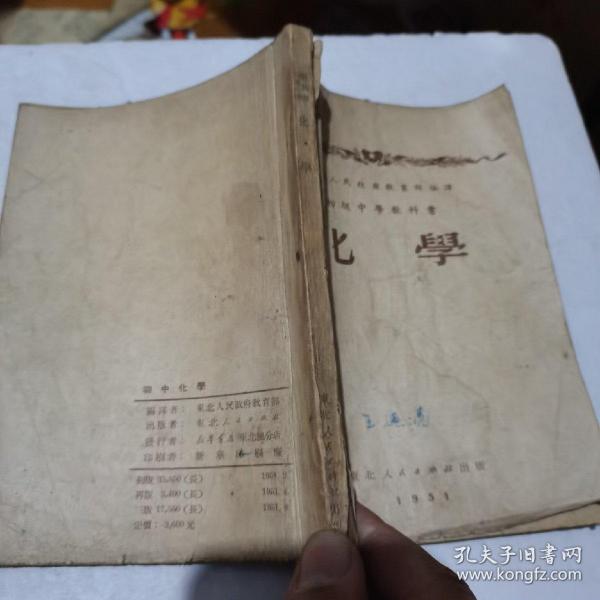 初中化學
編譯者： 東北人民政府教育部
出版者： 東北人民出版社
發行者： 新華書店東北總分店
印刷者： 新華印刷廠
初版 35,500（長）
再版 3,400（長） 1951.
三版 17,500（長） 1951.
定價：3,600元
化學
人民政府教育部編譯
初級中學教科書
化學
東北人民出版社出版
1951
孔夫子旧书网
www.kongfz.com